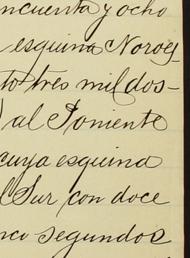 ncuenta y ocho
esquina Noroes-
to tres mil dos-
) al Poniente
cuya esquina
l Sur con doce
nco segundos